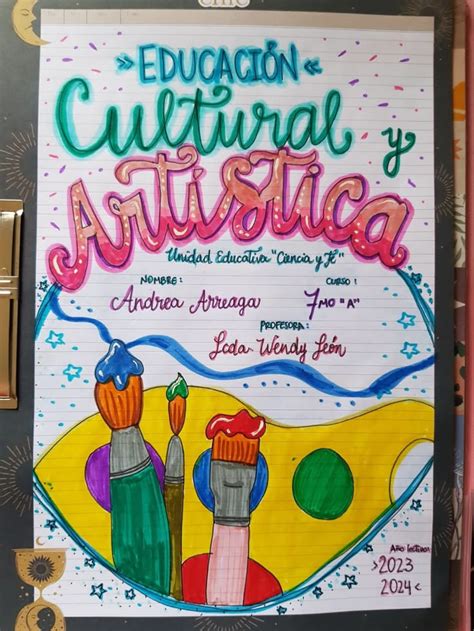 » EDUCACIÓN «
Cultural y
Artística
Unidad Educativa "Ciencia y Fé"
NOMBRE: CURSO:
Andrea Arreaga 7MO "A"
PROFESORA:
Lcda Wendy León
Año lectivo:
>2023
2024<